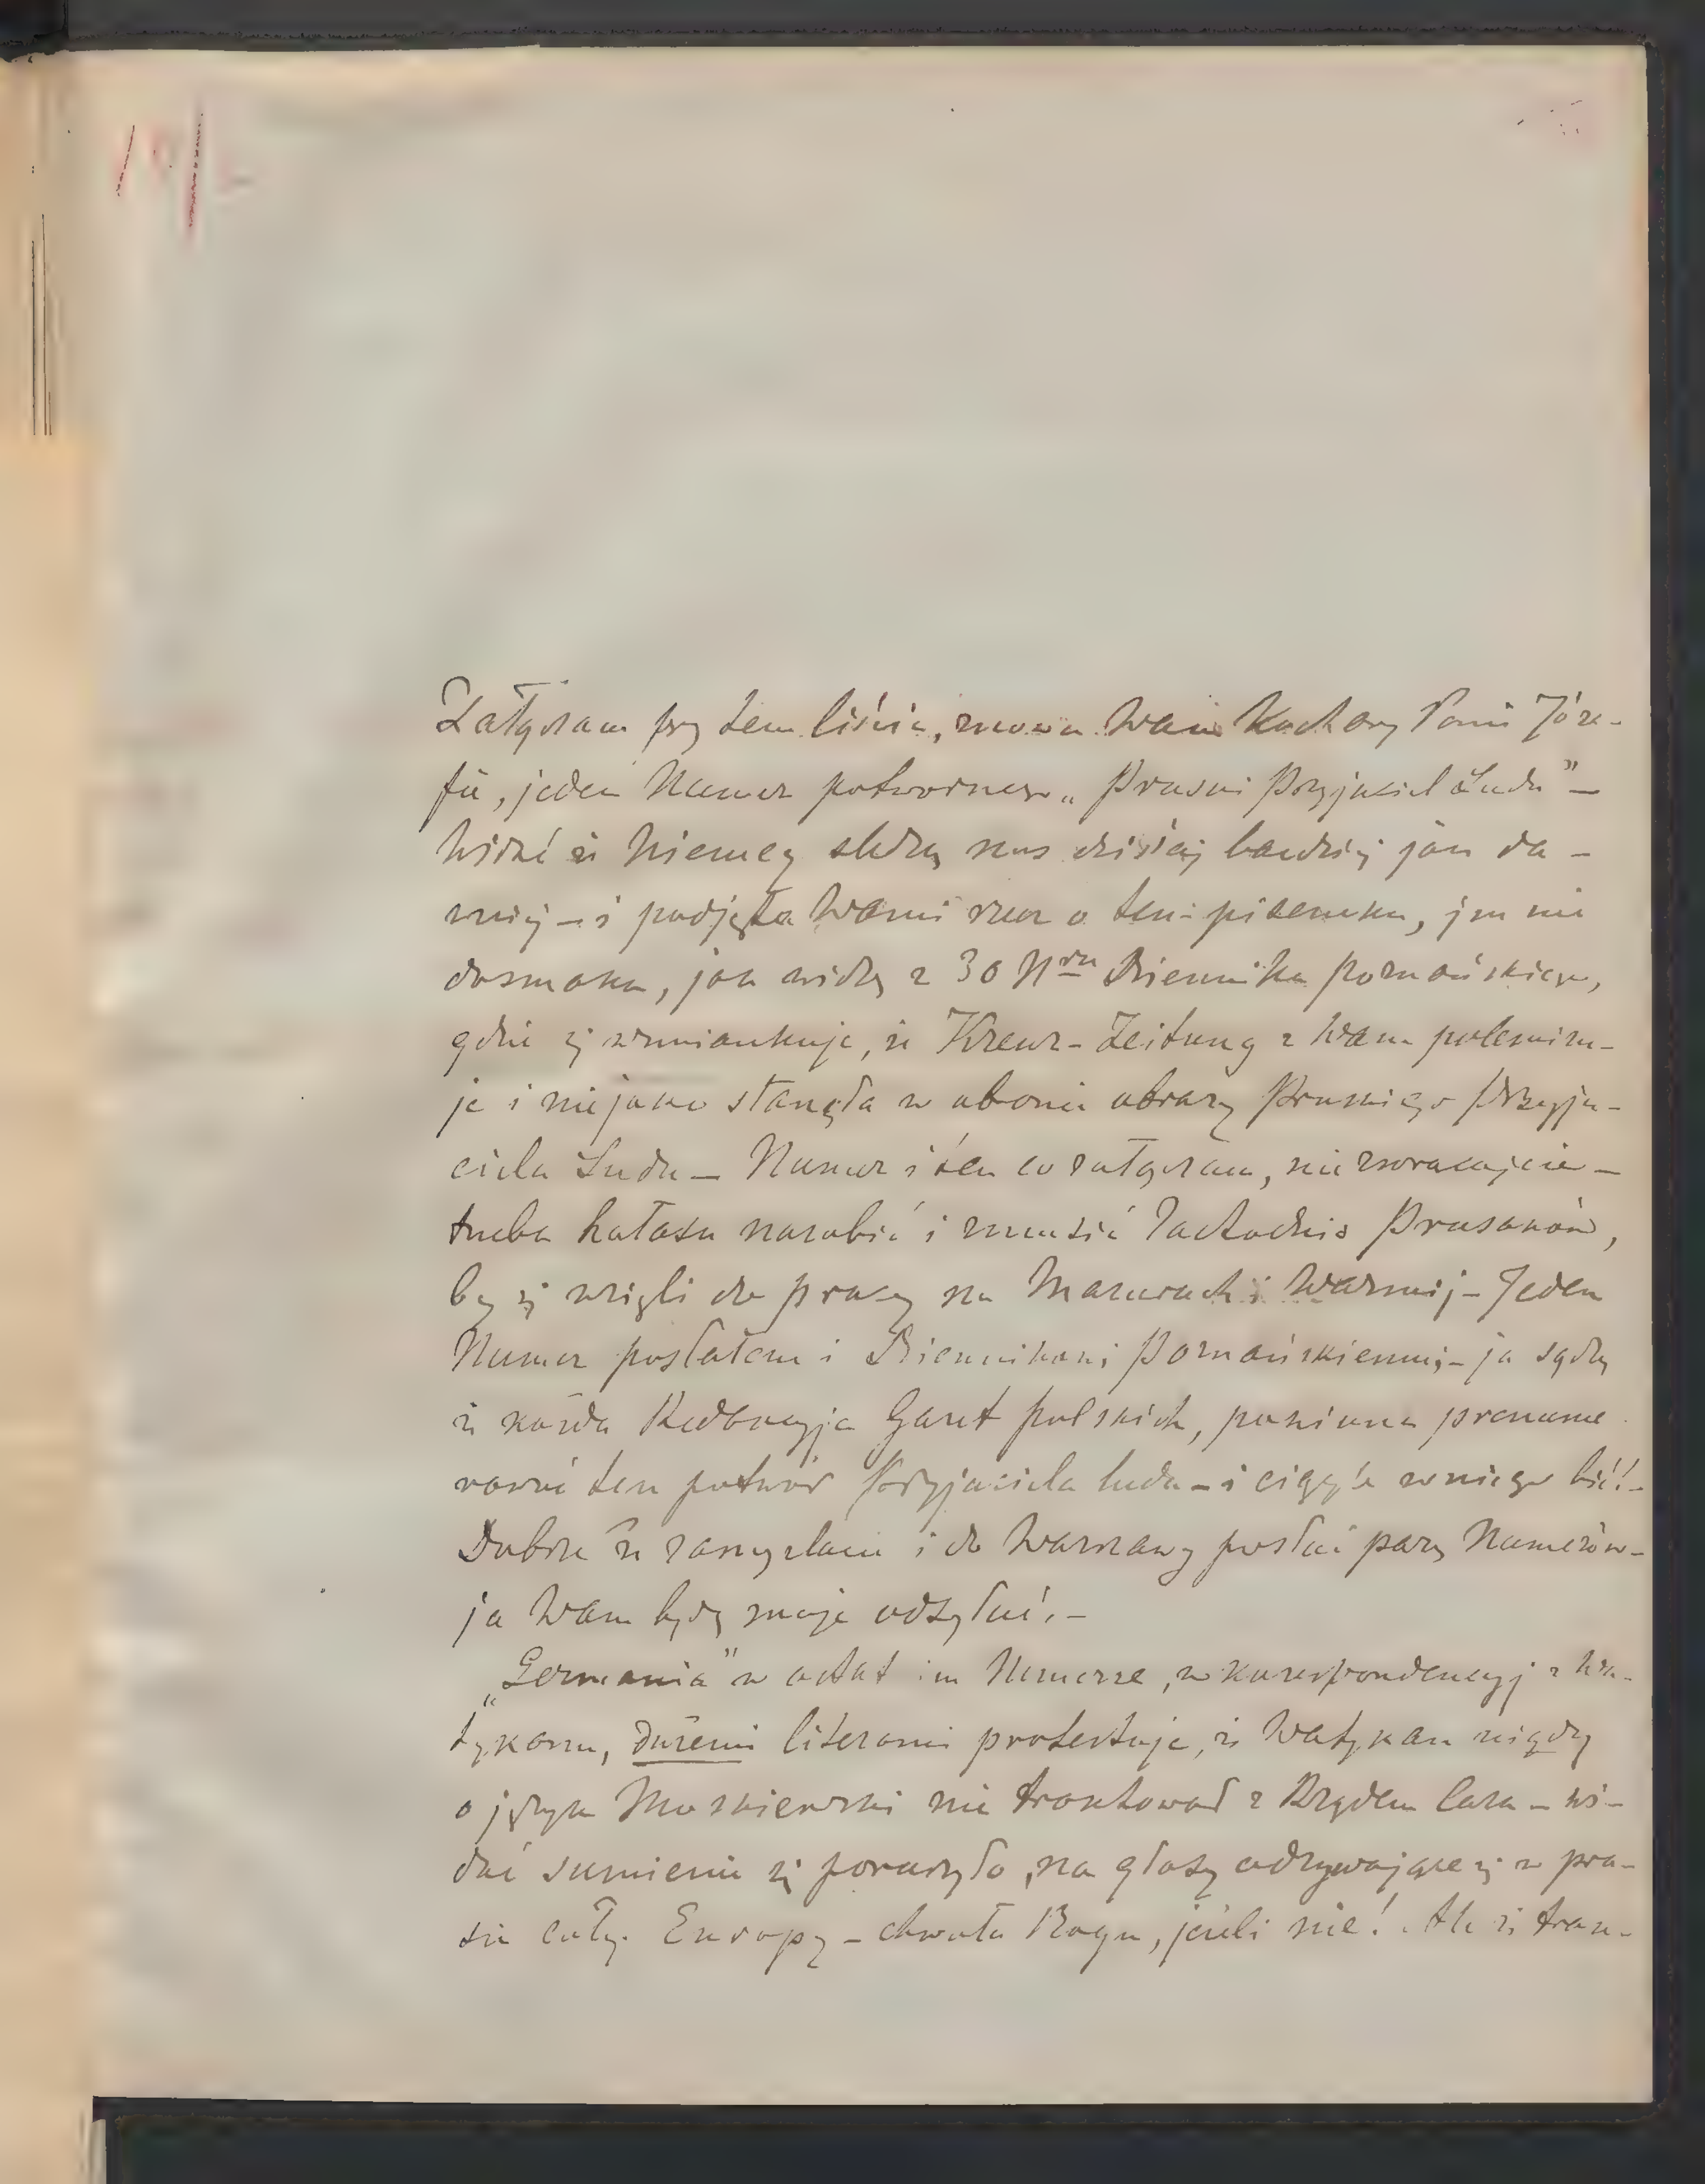 Załączam przy tem liście, znowu Wam Kochany Panie Józe-
fie, jeden Numer potwornego „Pruski Przyjaciel Ludu” –
Widać iż Niemcy śledzą nas dzisiaj bardziej jak da-
wniej – i podjęta Wami rzecz o tem pisemku, im nie
dosmaka, jak widzę z 30 Nru Dziennika Poznańskiego,
gdzie się wzmiankuje, iż Kreuz-Zeitung z Wam polemizu-
je i niejako stanęła w obronie obrazy Pruskiego Przyja-
ciela Ludu – Numer i ten co załączam, nie zwracajcie –
trzeba hałasu narobić i zmusić Zachodnio Prusaków,
by się wzięli do pracy na Mazurach i Warmij – Jeden
Numer posłałem i Dziennikowi Poznańskiemu, – ja sądzę
iż każda Redakcyja Gazet polskich, powinna prenume
rować ten potwór Przyjaciela ludu – i ciągle w niego bić! –
Dobrze iż zamyślacie i do Warszawy posłać parę Numerów –
ja Wam będę moje odsyłać. –
„Germania” w ostatnim Numerze, w korespondencyj z Wa-
tykanu, dużemi literami protestuje, iż Watykan nigdy
o język Moskiewski nie traktował z Rządem Cara – wi-
dać sumienie się poruszyło, na głosy odzywające się w pra-
sie całej Europy – chwała Bogu, jeżeli nie! Ale iż trak-